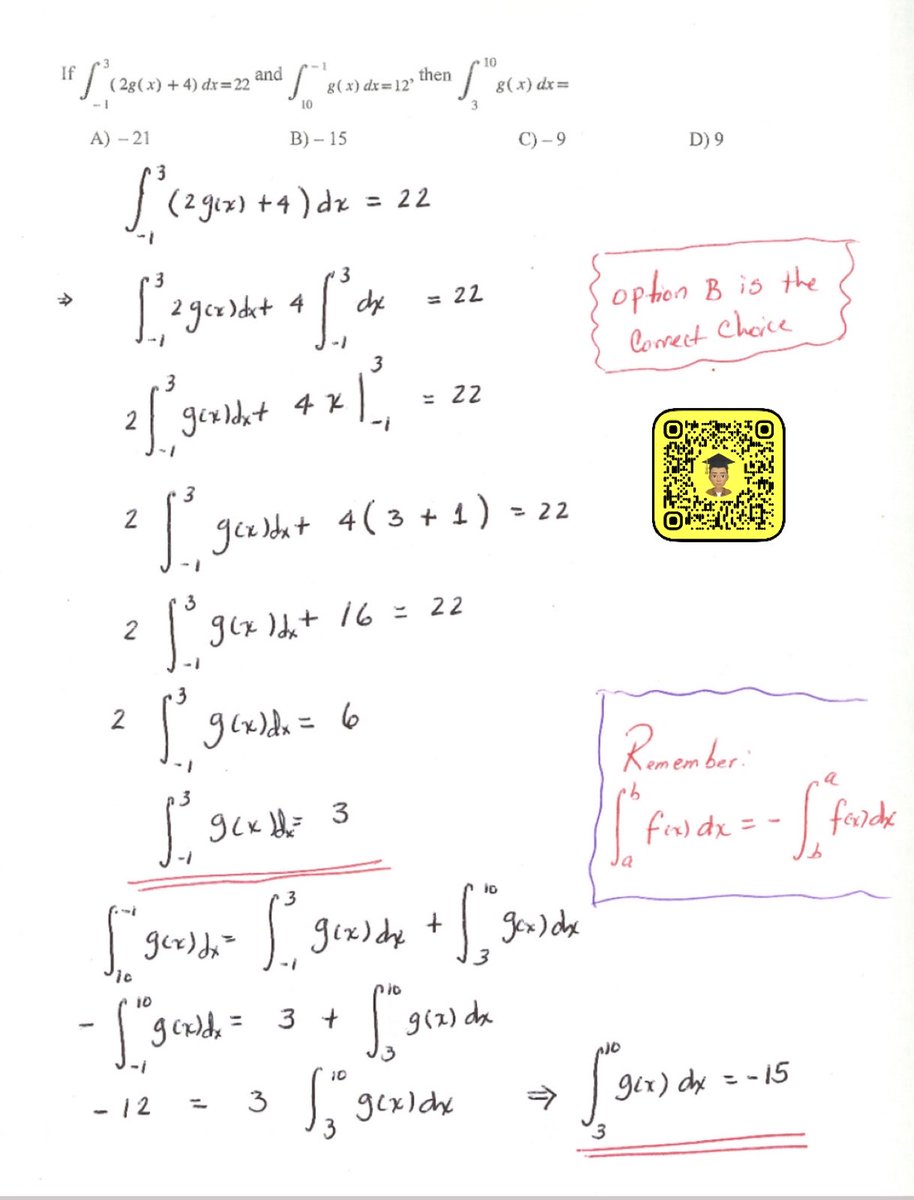 If ∫_{-1}^{3} (2g(x)+4) dx=22 and ∫_{10}^{-1} g(x) dx=12, then ∫_{3}^{10} g(x) dx=
A) –21 B) –15 C) –9 D) 9
∫_{-1}^{3} (2g(x)+4)dx = 22
⇒ ∫_{-1}^{3} 2g(x)dx + 4 ∫_{-1}^{3} dx = 22
2∫_{-1}^{3} g(x)dx + 4x|_{-1}^{3} = 22
2 ∫_{-1}^{3} g(x)dx + 4(3+1) = 22
2 ∫_{-1}^{3} g(x)dx + 16 = 22
2 ∫_{-1}^{3} g(x)dx = 6
∫_{-1}^{3} g(x)dx = 3
∫_{10}^{-1} g(x)dx = ∫_{-1}^{3} g(x)dx + ∫_{3}^{10} g(x)dx
- ∫_{-1}^{10} g(x)dx = 3 + ∫_{3}^{10} g(x)dx
-12 = 3 ∫_{3}^{10} g(x)dx ⇒ ∫_{3}^{10} g(x)dx = -15
option B is the
Correct Choice
Remember:
∫_{a}^{b} f(x)dx = - ∫_{b}^{a} f(x)dx